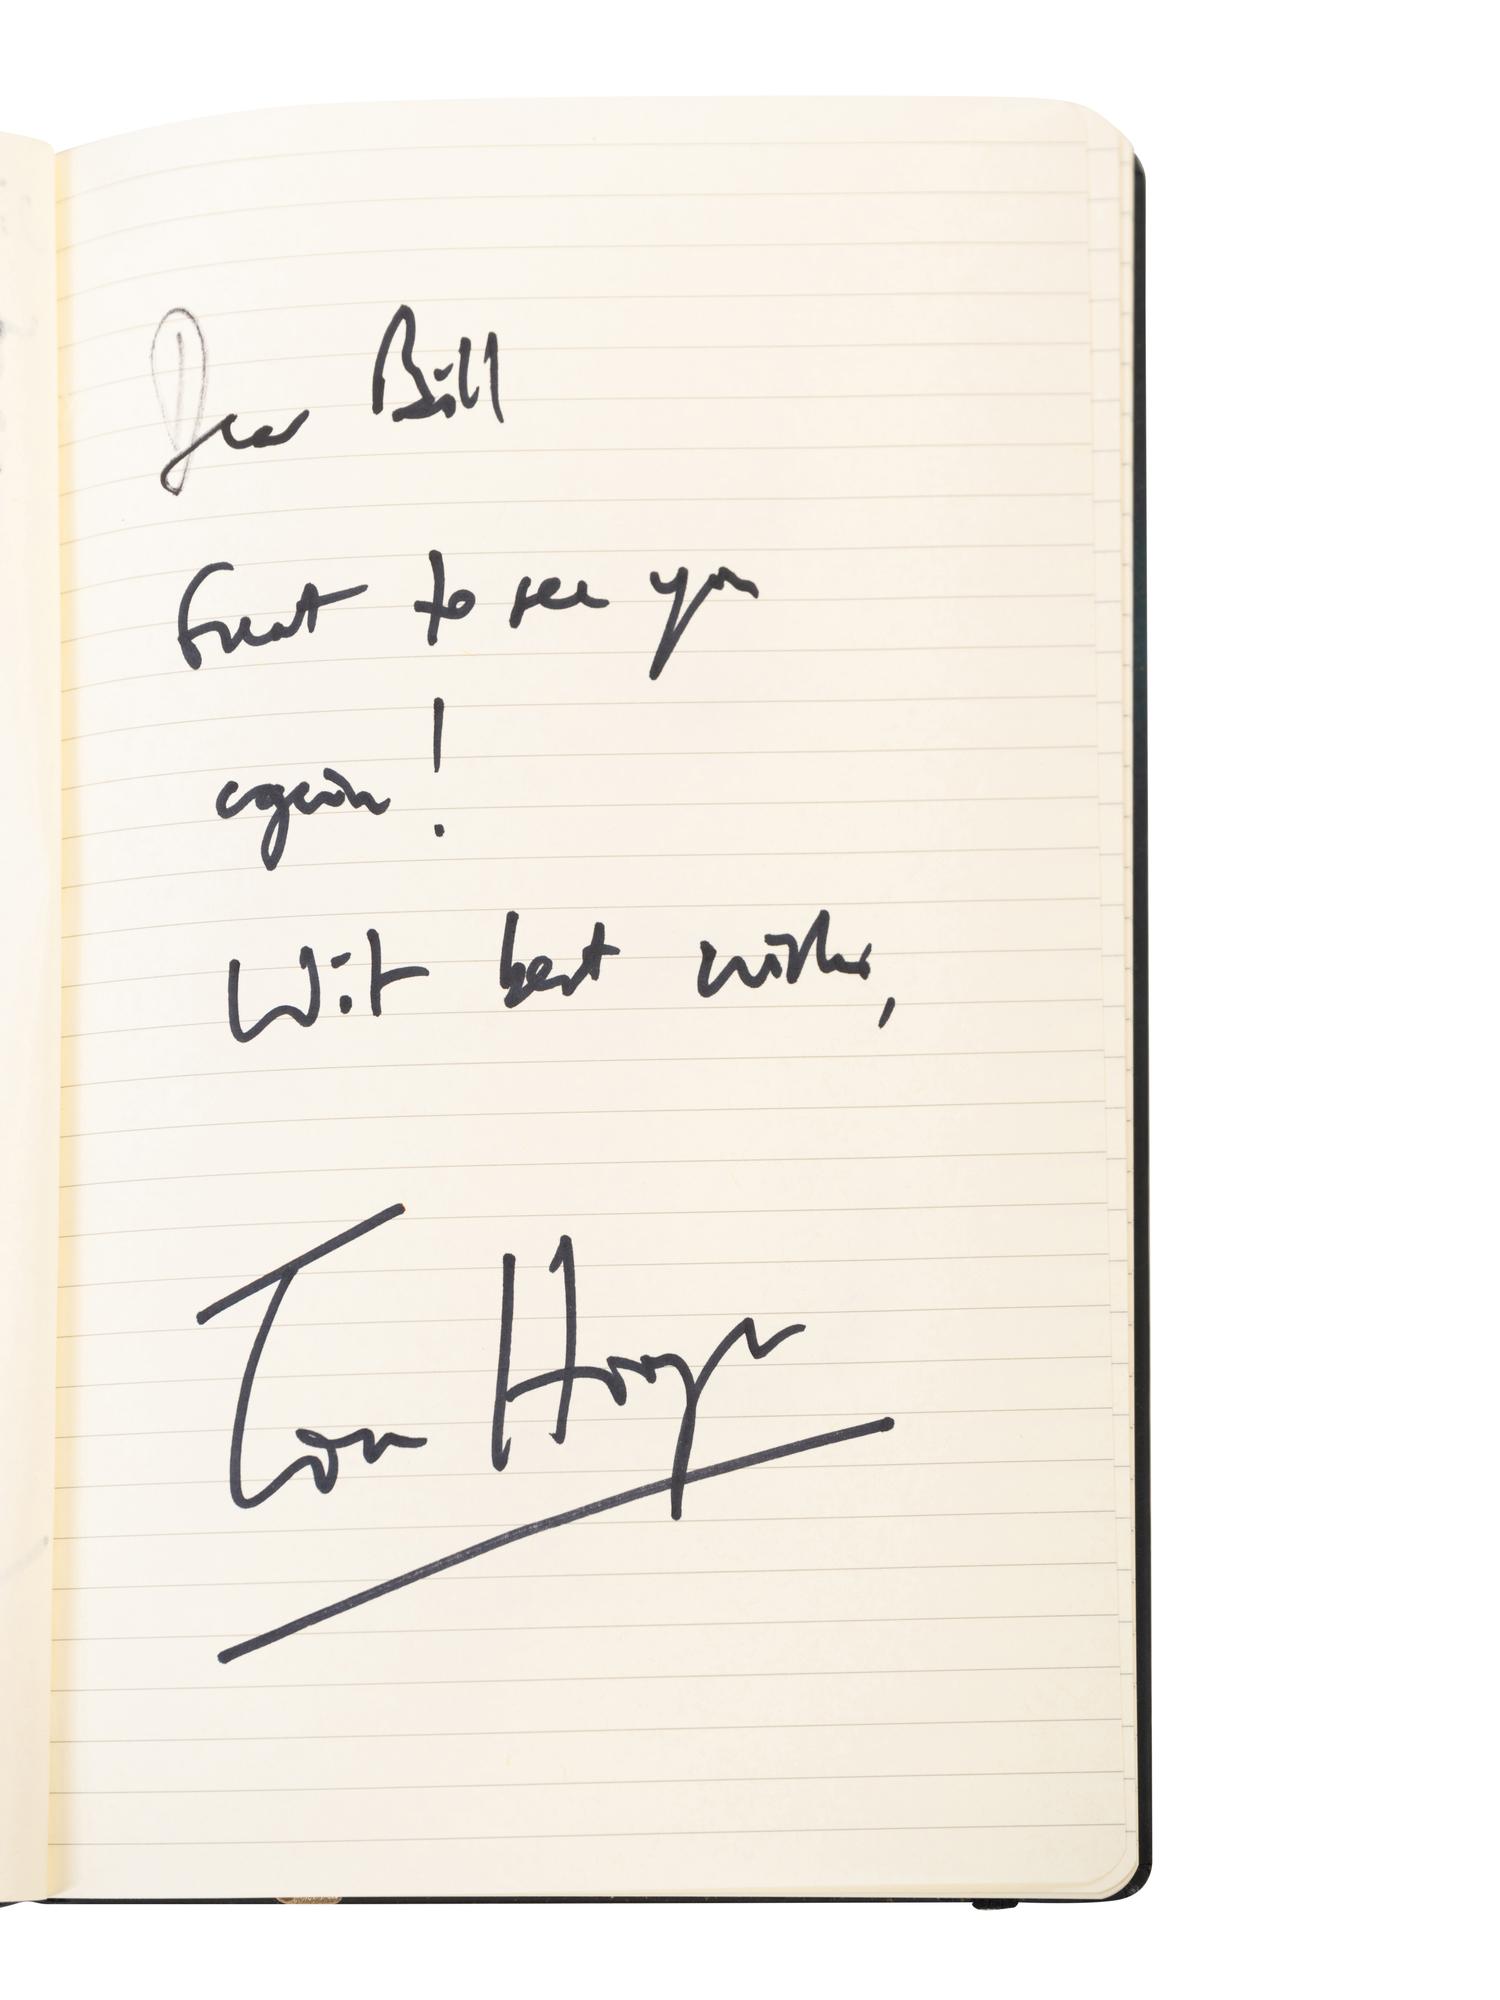 Dear Bill
Great to see you
again!
With best wishes,
Tom Hooper